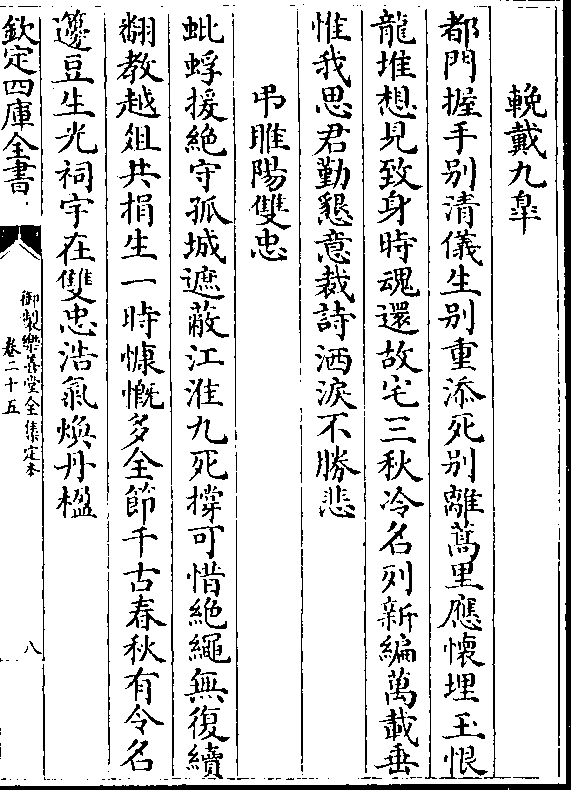 輓戴九臯
都門握手别清儀生别重添死别離蒿里應懷埋玉恨
龍堆想見致身時魂還故宅三秋冷名列新編萬載垂
惟我思君勤懇意裁詩洒淚不勝悲
弔睢陽雙忠
蚍蜉援絶守孤城遮蔽江淮九死撐可惜絶繩無復續
翻教越俎共捐生一時慷慨多全節千古春秋有令名
籩豆生光祠宇在雙忠浩氣煥丹楹
欽定四庫全書
御製樂善堂全集定本
卷二十五
八